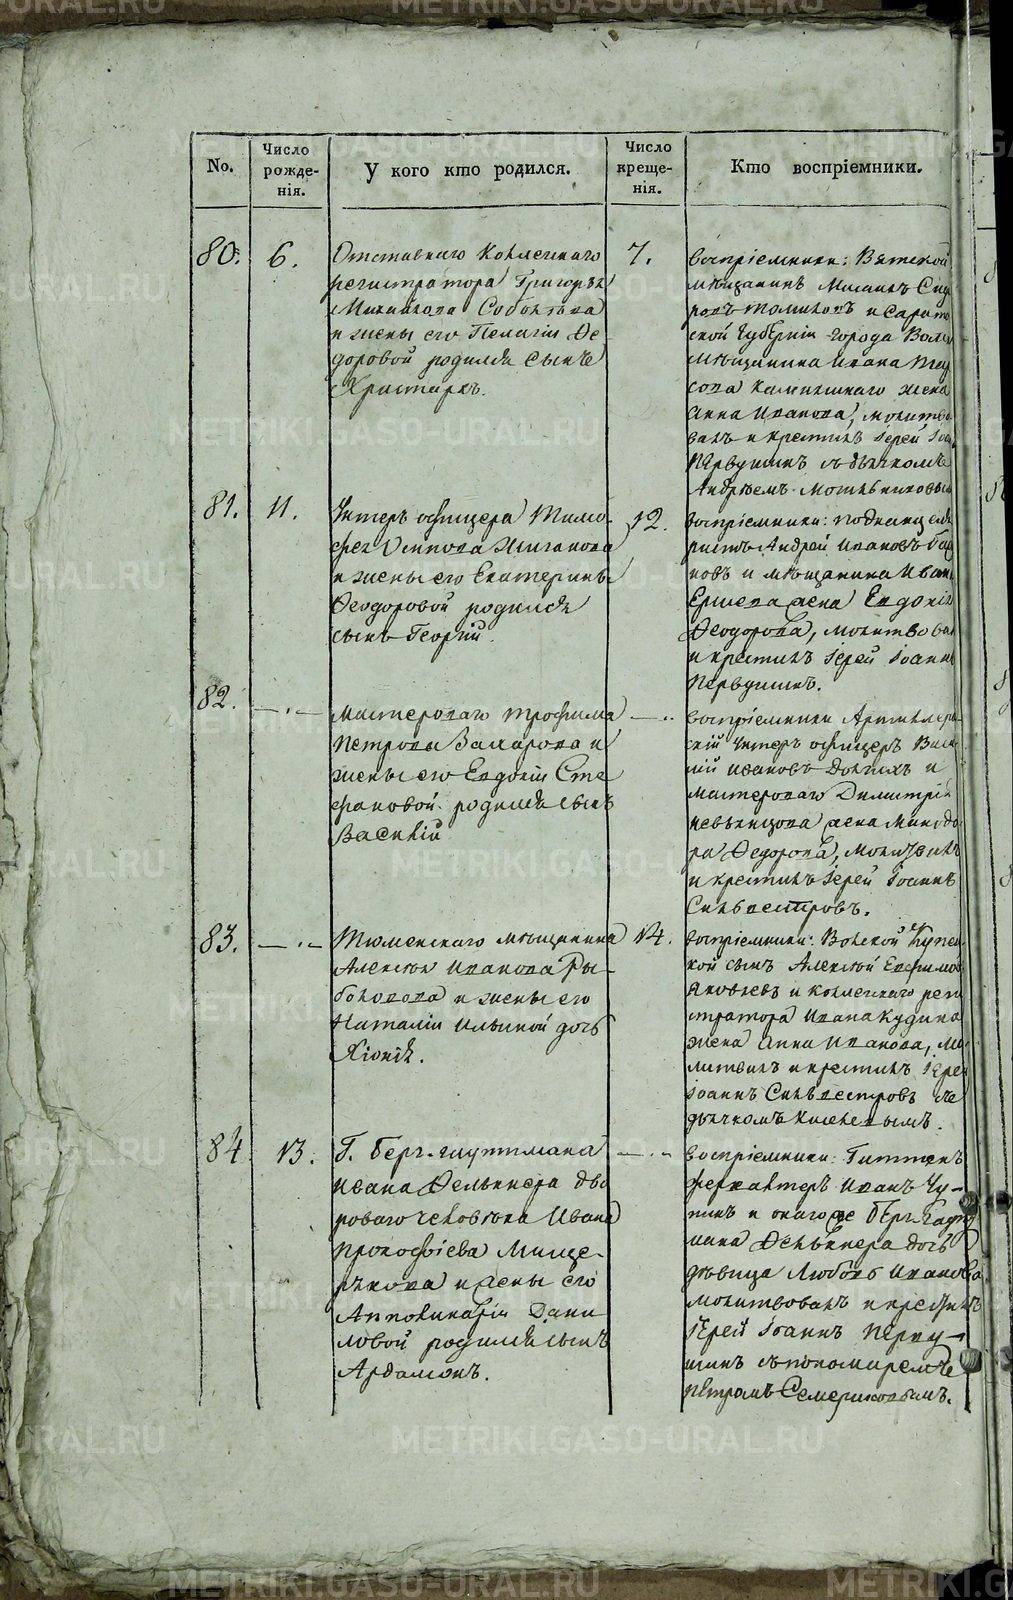 No.
Число рожде-
нія.
У кого кто родился.
Число креще-
нія.
Кто воспріемники.
80.
6.
Отставнаго Коллежскаго
регистратора Григорья
Михайлова Соболева
и жены его Пелагіи Ѳе
доровой родился сынъ
Христархъ.
7.
воспріемники: Вятской
мѣщанинъ
и Сарат
ской Губерніи города Воль
мѣщанина Ивана
жена
Анна Иванова, молитво
валъ и крестилъ Іерей Іоа
Первушинъ съ дьячкомъ
Андреемъ
81.
11.
Унтеръ офицера Тимо-
фея Осипова Жиганова
и жены его Екатерины
Ѳеодоровой родился
сынъ Георгій.
12.
воспріемники: подканцеля
ристъ Андрей Ивановъ
новъ и мѣщанина Ивана
Ершева жена Евдокія
Ѳеодорова, молитвовал
и крестилъ Іерей Іоаннъ
Первушинъ.
82.
—·—
Мастероваго Трофима
Петрова Захарова и
жены его Евдокіи Сте
фановой родился сынъ
Василій
—··
воспріемники Артиллери-
скій Унтеръ офицеръ Васи
лій Ивановъ Долгихъ и
мастероваго Димитрія
Невьянцова жена Минодо
ра Ѳедорова,
и крестилъ Іерей Іоаннъ
Сильвестровъ.
83.
—·—
Тюменскаго мѣщанина
Алексѣя Иванова Ры-
боловова и жены его
Наталіи Ильиной дочь
Хіонія.
14.
воспріемники: Вольской Купец
кой сынъ Алексѣй Ефимов
Яковлевъ и коллежскаго реги
стратора Ивана Кудина
жена Анна Иванова, мо
литвилъ и крестилъ Іерей
Іоаннъ Сильвестровъ съ
дьячкомъ Киселевымъ.
84
13.
Г. Берг-гауптмана
Ивана Фелькнера дво
роваго человѣка Ивана
Прокофіева Мище-
рякова и жены его
Апполинаріи Дани
ловой родился сынъ
Ардаліонъ.
—··
воспріемники: Гиттен
фервалтеръ Иванъ Чу-
пинъ и онаго же берг-гаупт
мана Фелькнера дочь
дѣвица Любовь Иванова
молитвовалъ и крестилъ
Іерей Іоаннъ Перву-
шинъ съ пономаремъ
Петромъ Семериковымъ.
METRIKI.GASO-URAL.RU